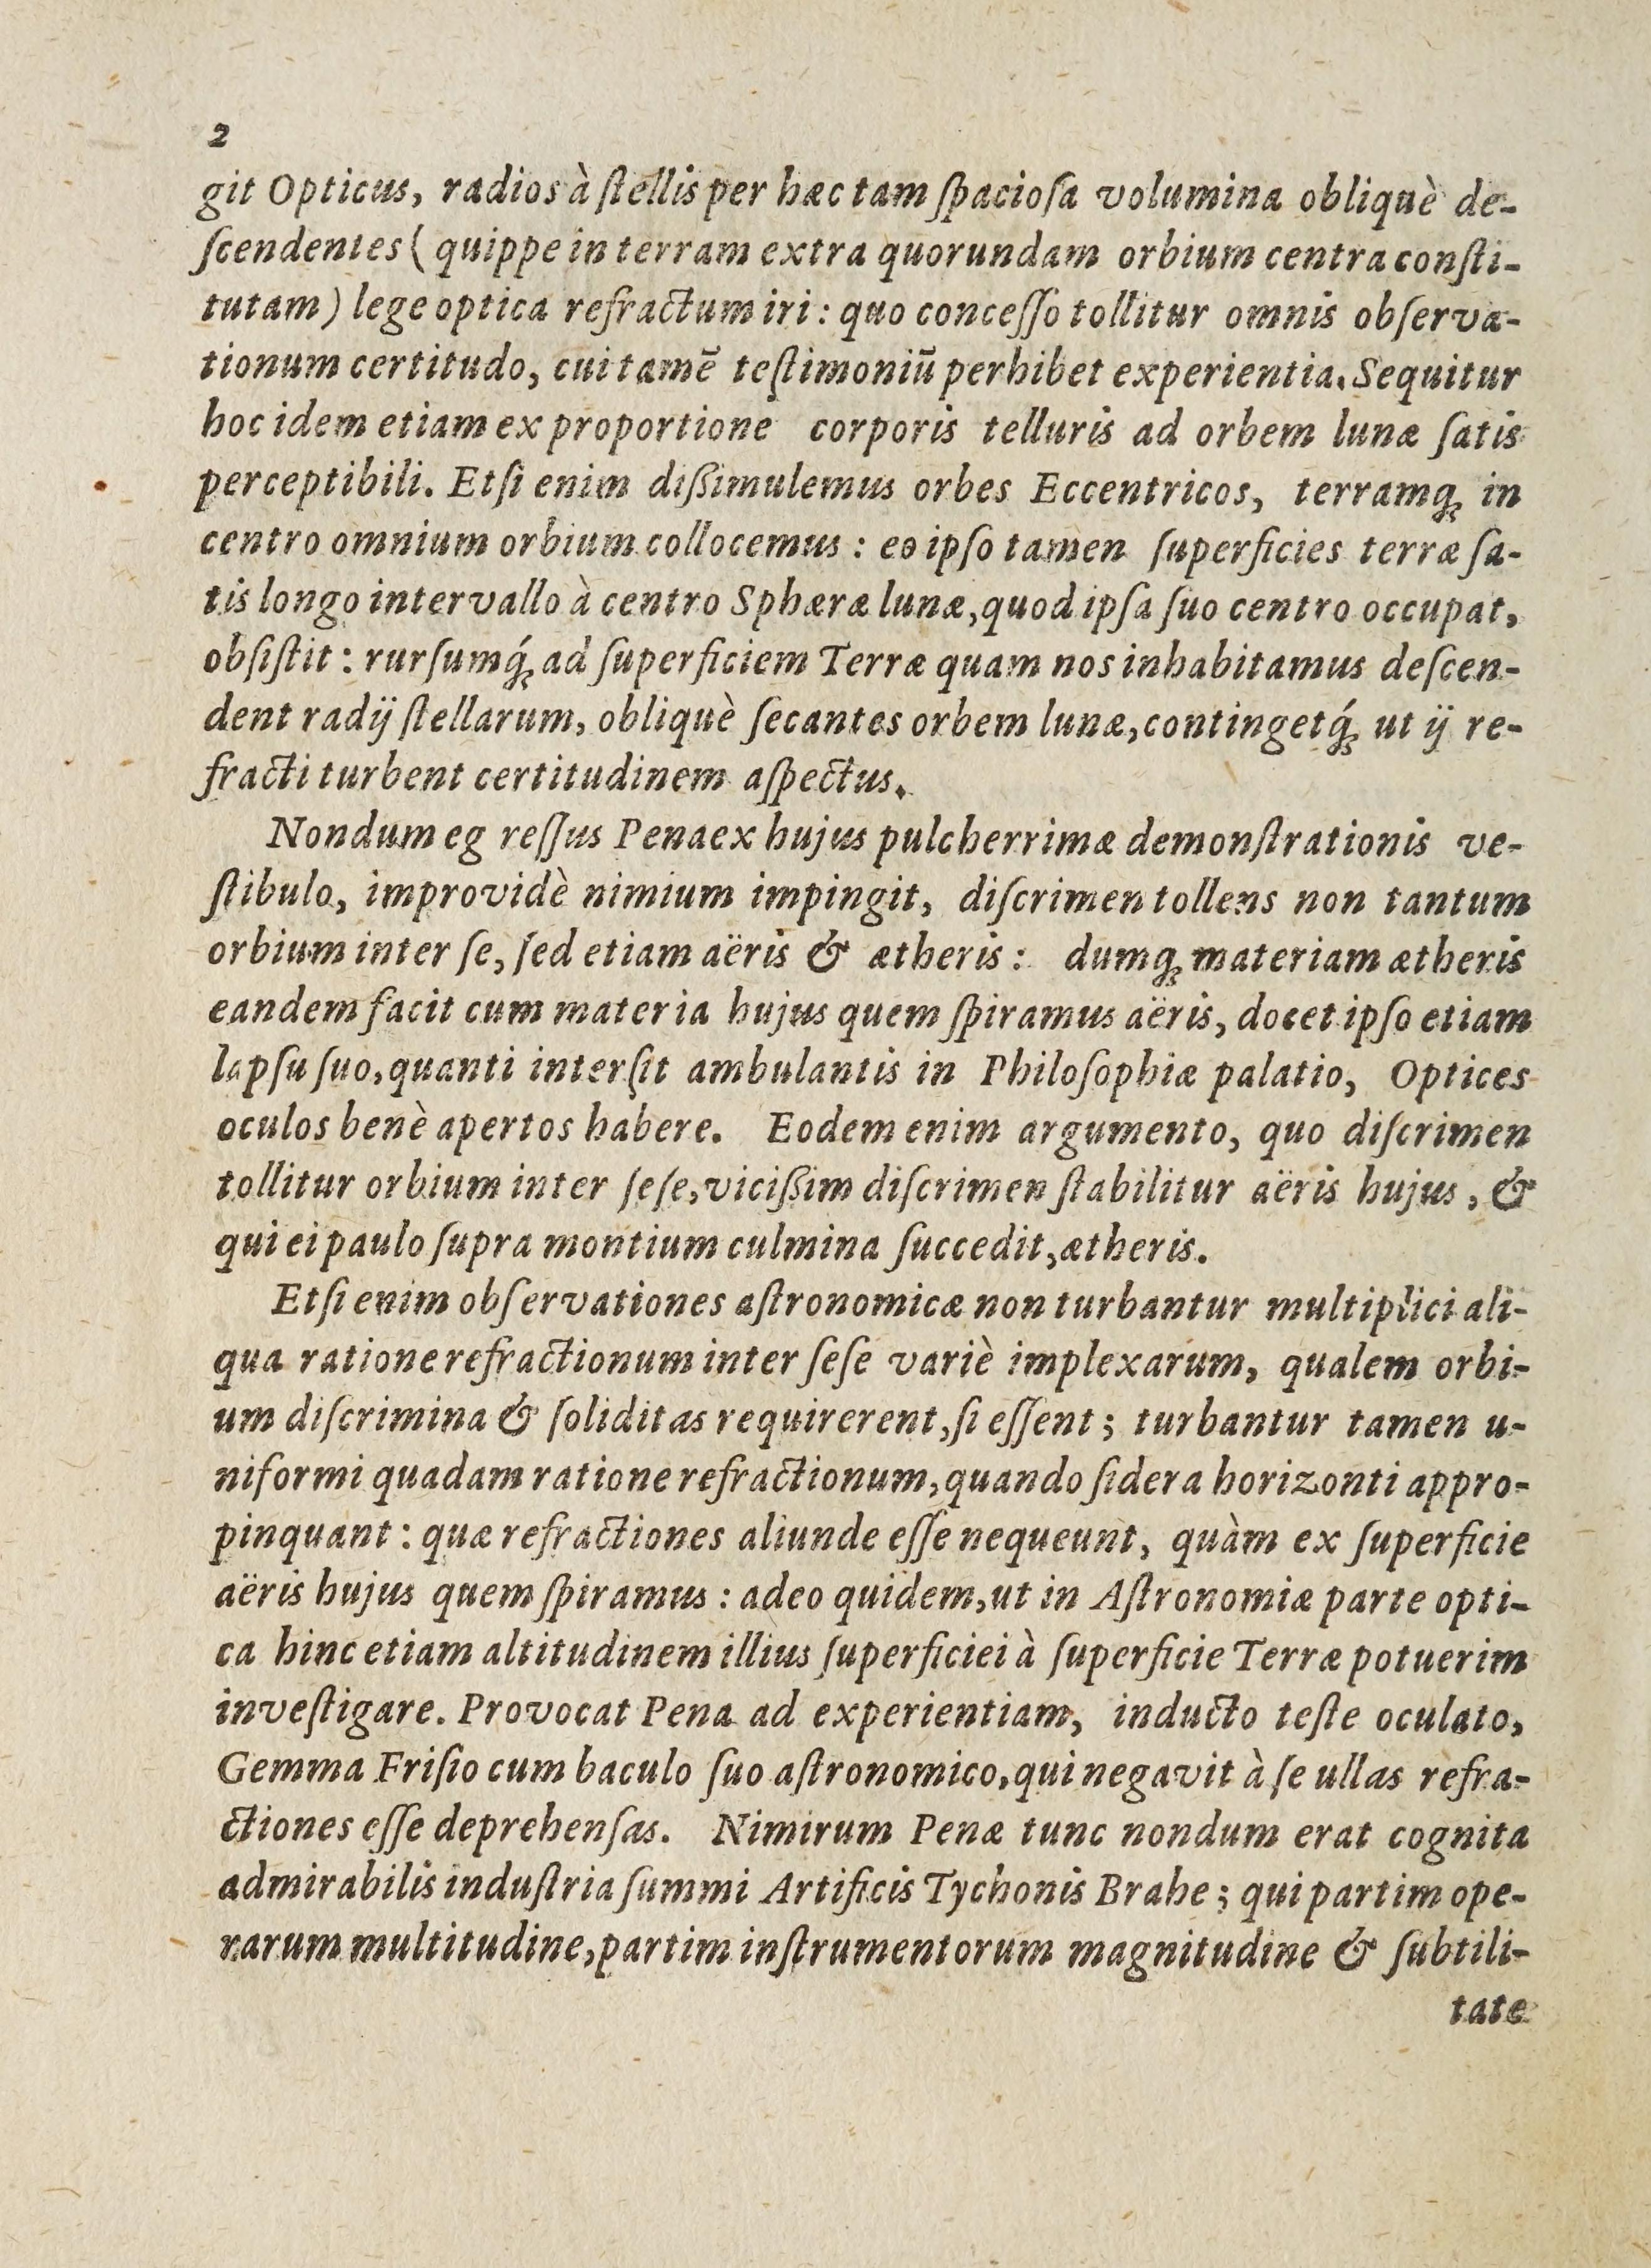 2
git Opticus, radios à ſtellis per hæc tam ſpacioſa volumina obliquè de-
ſcendentes (quippe in terram extra quorundam orbium centra conſti-
tutam) lege optica refractum iri: quo conceſſo tollitur omnis obſerva-
tionum certitudo, cui tamē teſtimoniū perhibet experientia. Sequitur
hoc idem etiam ex proportione corporis telluris ad orbem lunæ ſatis
perceptibili. Etſi enim dißimulemus orbes Eccentricos, terramq́; in
centro omnium orbium collocemus: eo ipſo tamen ſuperficies terræ ſa-
tis longo intervallo à centro Sphæræ lunæ, quod ipſa ſuo centro occupat,
obſiſtit: rurſumq́; ad ſuperficiem Terræ quam nos inhabitamus deſcen-
dent radij ſtellarum, obliquè ſecantes orbem lunæ, contingetq́; ut ij re-
fracti turbent certitudinem aſpectus.
Nondum eg reſſus Pena ex hujus pulcherrimæ demonſtrationis ve-
ſtibulo, improvidè nimium impingit, diſcrimen tollens non tantum
orbium inter ſe, ſed etiam aëris & ætheris: dumq; materiam ætheris
eandem facit cum materia hujus quem ſpiramus aëris, docet ipſo etiam
lapſu ſuo, quanti interſit ambulantis in Philoſophiæ palatio, Optices
oculos benè apertos habere. Eodem enim argumento, quo diſcrimen
tollitur orbium inter ſeſe, vicißim diſcrimen ſtabilitur aëris hujus, &
qui ei paulo ſupra montium culmina ſuccedit, ætheris.
Etſi enim obſervationes aſtronomicæ non turbantur multiplici ali-
qua ratione refractionum inter ſeſe variè implexarum, qualem orbi-
um diſcrimina & ſoliditas requirerent, ſi eſſent; turbantur tamen u-
niformi quadam ratione refractionum, quando ſidera horizonti appro-
pinquant: quæ refractiones aliunde eſſe nequeunt, quàm ex ſuperficie
aëris hujus quem ſpiramus: adeo quidem, ut in Aſtronomiæ parte opti-
ca hinc etiam altitudinem illius ſuperficiei à ſuperficie Terræ potuerim
inveſtigare. Provocat Pena ad experientiam, inducto teſte oculato,
Gemma Friſio cum baculo ſuo aſtronomico, qui negavit à ſe ullas refra-
ctiones eſſe deprehenſas. Nimirum Penæ tunc nondum erat cognita
admirabilis induſtria ſummi Artificis Tychonis Brahe; qui partim ope-
rarum multitudine, partim inſtrumentorum magnitudine & ſubtili-
tate